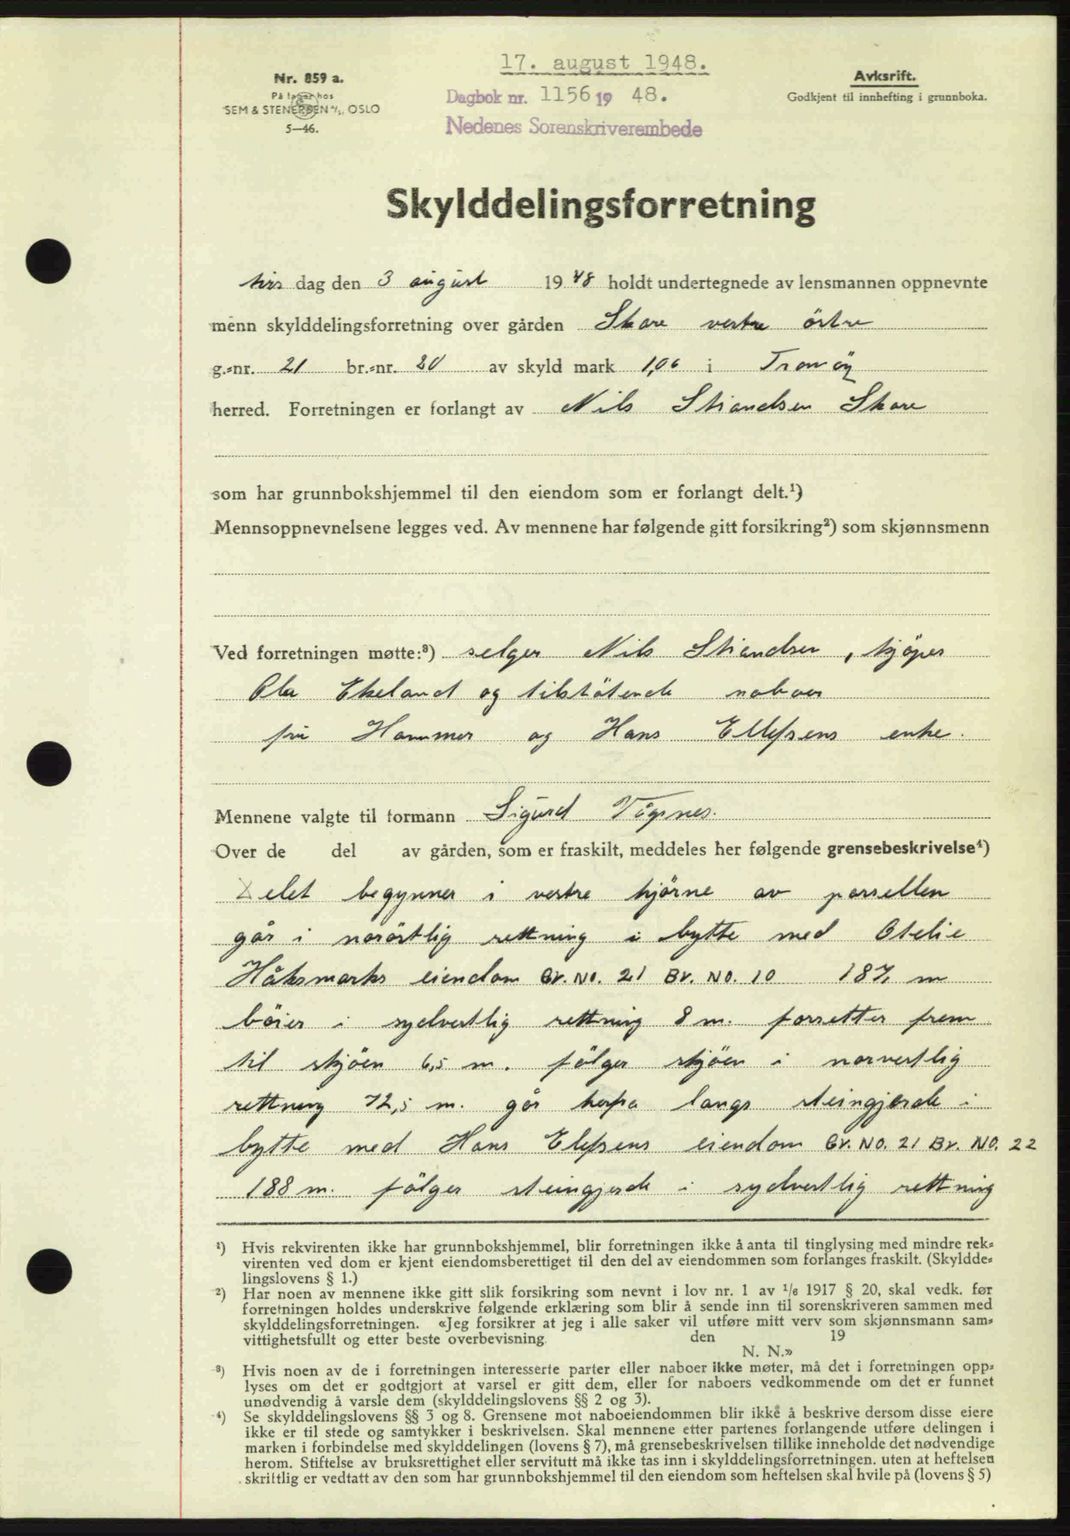 17. august 1948.
Nr. 859 a.
På lager hos
SEM & STENERSEN A/S, OSLO
5—46.
Dagbok nr. 1156 19 48.
Nedenes Sorenskriverembede
Avskrift.
Godkjent til innhefting i grunnboka.
Skylddelingsforretning
tirs dag den 3 august 1948 holdt undertegnede av lensmannen oppnevnte
menn skylddelingsforretning over gården Skare vestre östre
g.-nr. 21 br.-nr. 80 av skyld mark 1,06 i Tromöy
herred. Forretningen er forlangt av Nils Stiandsen Skare
som har grunnbokshjemmel til den eiendom som er forlangt delt.¹)
Mennsoppnevnelsene legges ved. Av mennene har følgende gitt forsikring²) som skjønnsmenn
Ved forretningen møtte:³) selger Nils Stiandsen, kjöper
Ola Ekeland og tilstötende naboer
fru Hammer og Hans Ellefsens enke.
Mennene valgte til formann Sigurd Vågsnes.
Over de del av gården, som er fraskilt, meddeles her følgende grensebeskrivelse⁴)
Delet begynner i vestre hjörne av parsellen
går i noröstlig rettning i bytte med Otelie
Håksmarks eiendom Gr. No. 21 Br. No. 10 187, m
böier i sydvestlig rettning 8 m. forsetter frem
til sjöen 6,5 m. fölger sjöen i norvestlig
rettning 72,5 m. går herfra langs steingjerde i
bytte med Hans Elefsens eiendom Gr. No. 21 Br. No. 22
188 m. fölger steingjerde i sydvestlig rettning
¹) Hvis rekvirenten ikke har grunnbokshjemmel, blir forretningen ikke å anta til tinglysing med mindre rek-
virenten ved dom er kjent eiendomsberettiget til den del av eiendommen som forlanges fraskilt. (Skyldde-
lingslovens § 1.)
²) Har noen av mennene ikke gitt slik forsikring som nevnt i lov nr. 1 av 1/6 1917 § 20, skal vedk. før
forretningen holdes underskrive følgende erklæring som blir å sende inn til sorenskriveren sammen med
skylddelingsforretningen. «Jeg forsikrer at jeg i alle saker vil utføre mitt verv som skjønnsmann sam-
vittighetsfullt og etter beste overbevisning. den 19
N. N.»
³) Hvis noen av de i forretningen interesserte parter eller naboer ikke møter, må det i forretningen opp-
lyses om det er godtgjort at varsel er gitt dem, eller for naboers vedkommende om det er funnet
unødvendig å varsle dem (skylddelingslovens §§ 2 og 3).
⁴) Se skylddelingslovens §§ 3 og 8. Grensene mot naboeiendommen blir ikke å beskrive dersom disse eiere
ikke er til stede og samtykker i beskrivelsen. Skal mennene etter partenes forlangende utføre delingen i
marken i forbindelse med skylddelingen (lovens § 7), må grensebeskrivelsen tillike inneholde det nødvendige
herom. Stiftelse av bruksrettighet eller servitutt må ikke tas inn i skylddelingsforretningen. uten at heftelsen
skriftlig er vedtatt av den som har grunnbokshjemmel til den eiendom som heftelsen skal hvile på (lovens § 5)